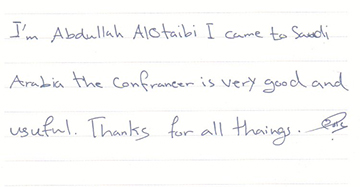 I'm Abdullah AlOtaibi I came to Saudi
Arabia the Confrancer is very good and
usuful. Thanks for all thaings.